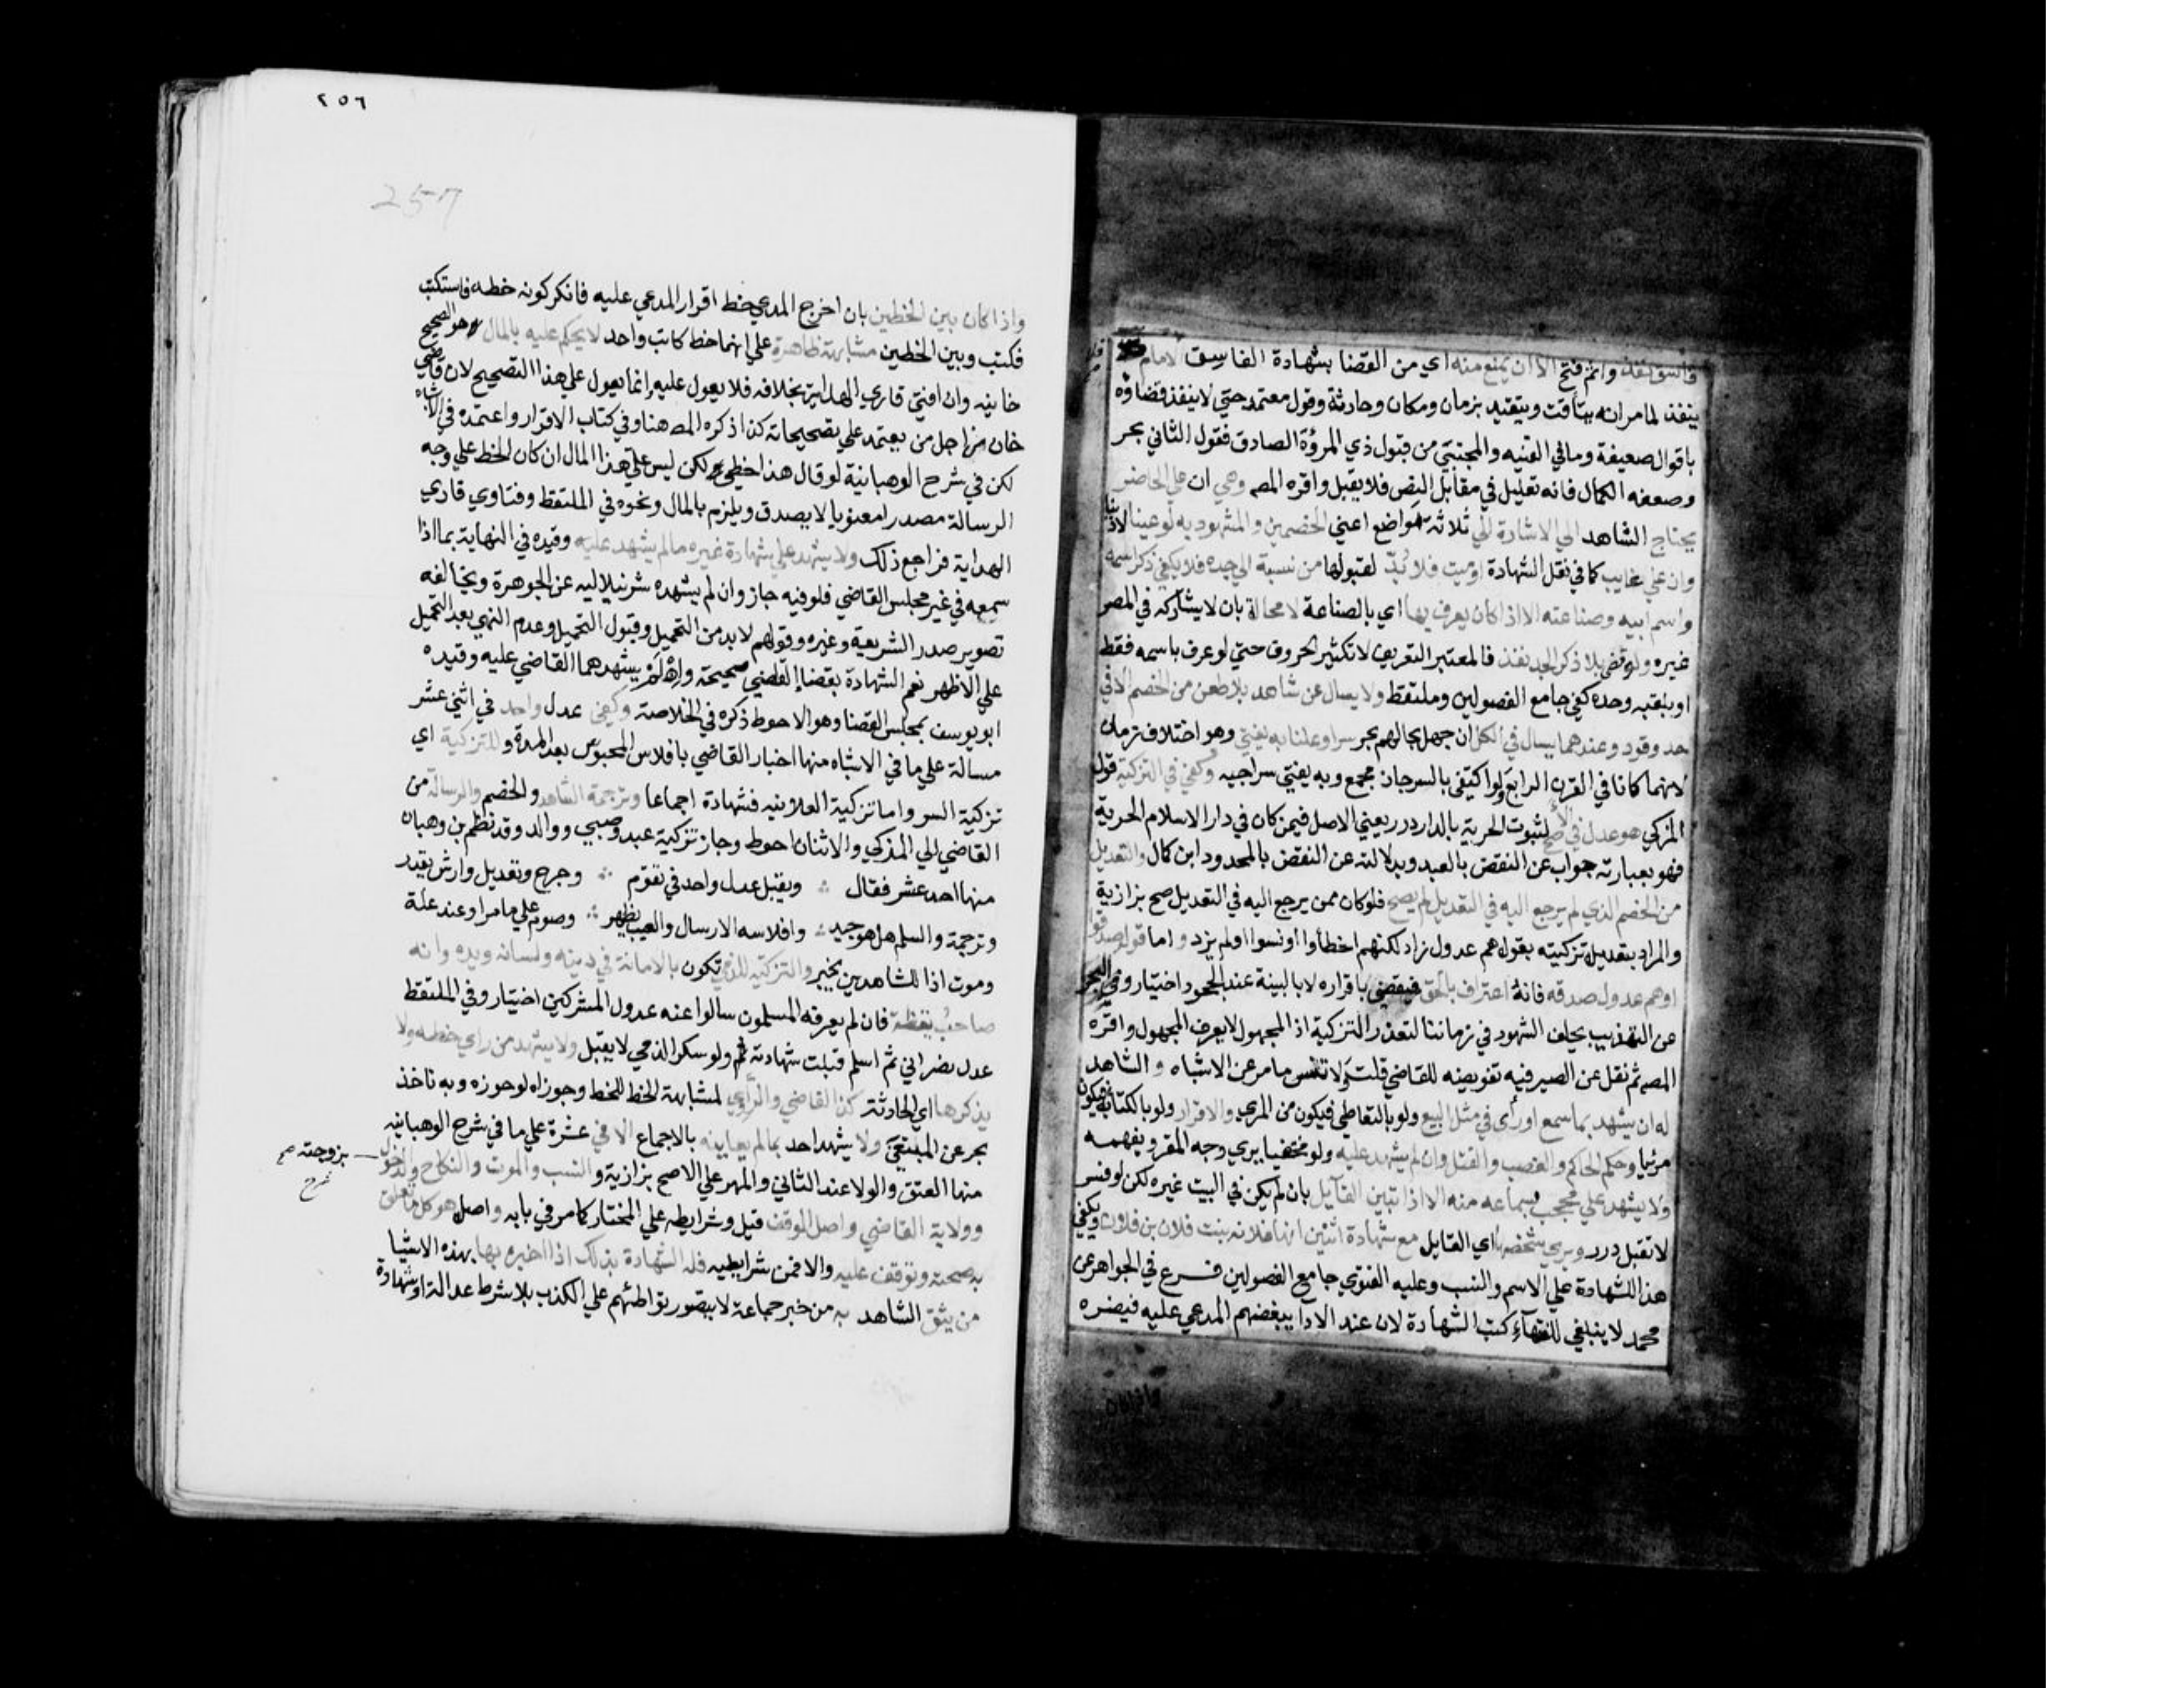 فاسق نفذ واثم فتح الا ان يمنع منه اي من القضا بشهادة الفاسق الامام
ينفذ لما مر انه يتاقت ويتقيد بزمان ومكان وحادثة وقول معتمد حتي لا ينفذ قضاؤه
باقوال ضعيفة وما في القنيه والمجتبي من قبول ذي المرؤة الصادق فقول الثاني بحر
وضعفه الكمال فانه تعليل في مقابل النص فلا يقبل واقره المص وهي ان علي الحاضر
يحتاج الشاهد الي الاشارة الي ثلاثة مواضع اعني الخصمين والمشهود به لو عينا لا دينا
وان علي غايب كما في نقل الشهادة او ميت فلا بد لقبولها من نسبة الي جده فلا يكفي ذكر اسمه
واسم ابيه وصناعته الا اذا كان يعرف بها اي بالصناعة لا محالة بان لا يشاركه في المصر
غيره ولو قضي بلا ذكر الجد نفذ فالمعتبر التعريف لا تكثير الحروف حتي لو عرف باسمه فقط
او بلقبه وحده كفي جامع الفصولين وملتقط ولا يسال عن شاهد بلا طعن من الخصم الا في
حد وقود وعندهما يسال في الكل ان جهل بحالهم بحر سرا وعلنا به يفتي وهو اختلاف زمان
لانهما كانا في القرن الرابع ولو اكتفي بالسر جاز مجمع وبه يفتي سراجيه وكفي في التزكية قول
المزكي هو عدل في الاصح لثبوت الحرية بالدار درر يعني الاصل فيمن كان في دار الاسلام الحرية
فهو بعبارته جواب عن النقض بالعبد وبدلالته عن النقض بالمحدود ابن كمال والتعديل
من الخصم الذي لم يرجع اليه في التعديل لم يصح فلو كان ممن يرجع اليه في التعديل صح بزازية
والمراد بتعديل تزكيته بقول هم عدول زاد لكنهم اخطأوا او نسوا او لم يزد واما قوله صدقوا
او هم عدول صدقه فانه اعتراف بالحق فيقضي باقراره لا بالبينة عند الجحود اختيار وفي البحر
عن التهذيب يحلف الشهود في زماننا لتعذر التزكية اذ المجهول لا يعرف المجهول واقره
المص ثم نقل عن الصيرفيه تفويضه للقاضي قلت ولا تنس ما مر عن الاشباه والشاهد
له ان يشهد بما سمع او رأى في مثل البيع ولو بالتعاطي فيكون من المري والاقرار ولو بالكتابة فيكون
مرئيا وحكم الحاكم والغصب والقتل وان لم يشهد عليه ولو مختفيا يري وجه المقر ويفهمه
ولا يشهد علي محجب بسماعه منه الا اذا تبين القايل بان لم يكن في البيت غيره لكن لو فسر
لا تقبل درر ويري شخصها اي القايل مع شهادة اثنين انها فلانه بنت فلان بن فلان ويكفي
هذا للشهادة علي الاسم والنسب وعليه الفتوي جامع الفصولين فرع في الجواهر عن
محمد لا ينبغي للفقهاء كتب الشهادة لان عند الادا يبغضهم المدعي عليه فيضره
واذا كان
٢٥٦
257
واذا كان بين الخطين بان اخرج المدعي خط اقرار المدعي عليه فانكر كونه خطه فاستكتب
فكتب وبين الخطين مشابهة ظاهرة علي انهما خط كاتب واحد لا يحكم عليه بالمال هو الصحيح
خانيه وان افتي قاري الهداية بخلافه فلا يعول عليه وانما يعول علي هذا التصحيح لان قاضي
خان من اجل من يعتمد علي تصحيحاته كذا ذكره المص هنا وفي كتاب الاقرار واعتمده في الاشباه
لكن في شرح الوهبانية لو قال هذا خطي لكن ليس علي هذا المال ان كان الخط علي وجه
الرسالة مصدرا معنونا لا يصدق ويلزم بالمال ونحوه في الملتقط وفتاوي قاري
الهداية فراجع ذلك ولا يشهد علي شهادة غيره ما لم يشهد عليه وقيده في النهاية بما اذا
سمعه في غير مجلس القاضي فلو فيه جاز وان لم يشهده شرنبلاليه عن الجوهرة ويخالفه
تصوير صدر الشريعة وغيره وقولهم لابد من التحميل وقبول التحميل وعدم النهي بعد التحميل
علي الاظهر نعم الشهادة بقضا القاضي صحيحة وان لم يشهدهما القاضي عليه وقيده
ابو يوسف بمجلس القضا وهو الاحوط ذكره في الخلاصة وكفي عدل واحد في اثني عشر
مسالة علي ما في الاشباه منها اخبار القاضي بافلاس المحبوس بعد المدة وللتزكية اي
تزكية السر واما تزكية العلانيه فشهادة اجماعا وترجمة الشاهد والخصم والرسالة من
القاضي الي المزكي والاثنان احوط وجاز تزكية عبد وصبي ووالد وقد نظم بن وهبان
منها احد عشر فقال ∴ ويقبل عدل واحد في تقوم ∴ وجرح وتعديل وارش يقدر
وترجمة والسلم هل هو جيد ∴ وافلاسه الارسال والعيب يظهر ∴ وصوم علي ما مر او عند علة
وموت اذا للشاهدين يخبر والتزكية للذمي تكون بالامانة في دينه ولسانه ويده وانه
صاحب يقظة فان لم يعرفه المسلمون سالوا عنه عدول المشركين اختيار وفي الملتقط
عدل نصراني ثم اسلم قبلت شهادته ثم ولو سكر الذمي لا يقبل ولا يشهد من راي خطه ولا
يذكرها اي الحادثة كذا القاضي والراوي لمشابهة الخط للخط وجوزاه لو حوزه وبه ناخذ
بحر عن المبتغي ولا يشهد احد بما لم يعاينه بالاجماع الا في عشرة علي ما في شرح الوهبانيه
منها العتق والولا عند الثاني والمهر علي الاصح بزازية والنسب والموت والنكاح والدخول
بزوجته صح
شرح
وولاية القاضي واصل الوقف قيل وشرايطه علي المختار كما مر في بابه واصله هو كل ما تعلق
به صحته وتوقف عليه والا فمن شرايطه فله الشهادة بذلك اذا اخبره بها بهذه الاشيا
من يثق الشاهد به من خبر جماعة لا يتصور تواطئهم علي الكذب بلا شرط عدالة او شهادة